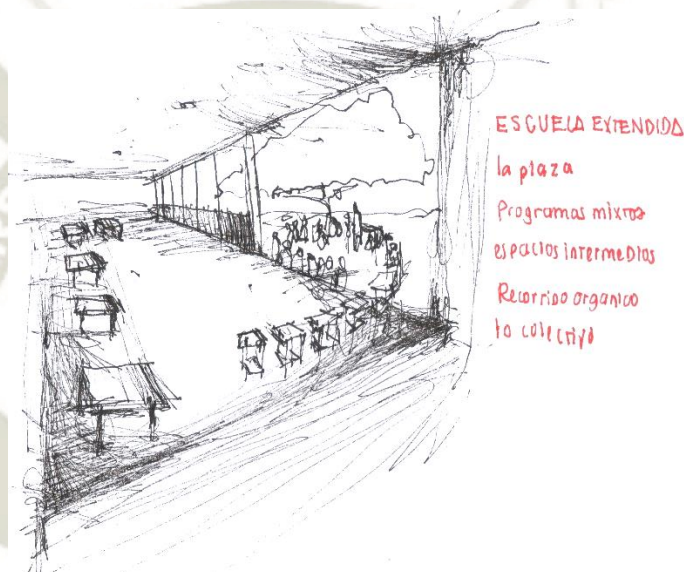 ESCUELA EXTENDIDA
la plaza
Programas mixtos
espacios intermedios
Recorrido organico
lo colectivo